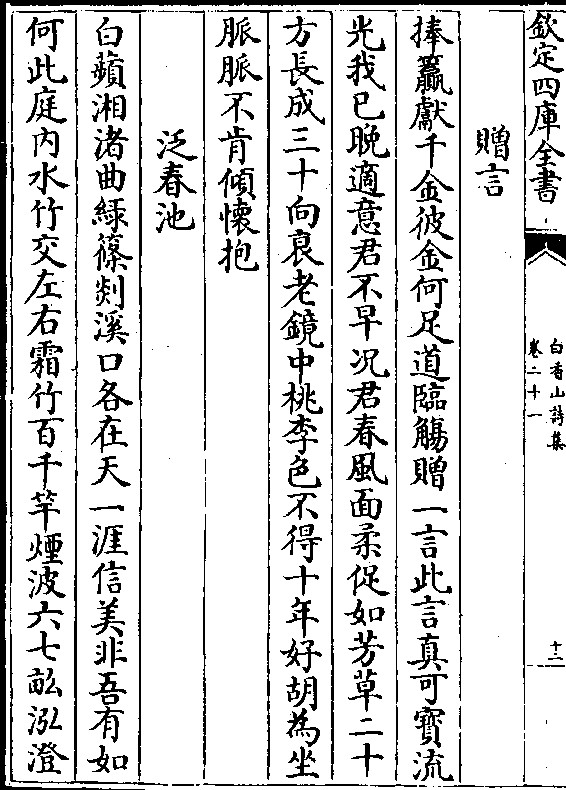 欽定四庫全書
白香山詩集
卷二十一
十二
贈言
捧籯獻千金彼金何足道臨觴贈一言此言真可寶流
光我已晚適意君不早况君春風面柔促如芳草二十
方長成三十向衰老鏡中桃李色不得十年好胡為坐
脈脈不肯傾懷抱
泛春池
白蘋湘渚曲綠篠剡溪口各在天一涯信美非吾有如
何此庭内水竹交左右霜竹百千竿煙波六七畝泓澄